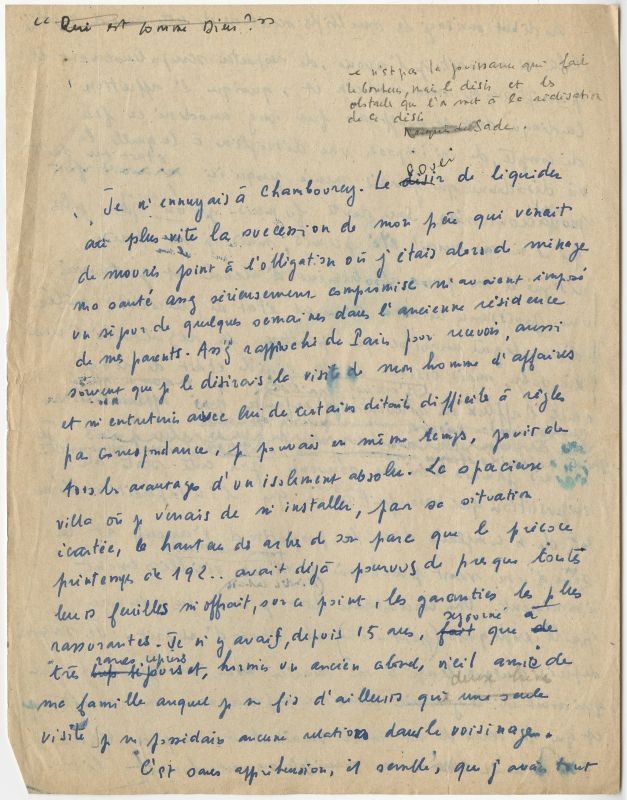 "Qui est comme Dieu?"
Ce n'est pas la jouissance qui fait
le bonheur, mais le désir et les
obstacles que l'on met à la réalisation
de ce désir
Marquis de Sade.
souci
Je m'ennuyais à Chambourcy. Le désir de liquider
au plus vite la succession de mon père qui venait
de mourir joint à l'obligation où j'étais alors de ménager
ma santé assez sérieusement compromise m'avaient imposé
un séjour de quelques semaines dans l'ancienne résidence
de mes parents. Assez rapproché de Paris pour recevoir, aussi
souvent que je le désirais la visite de mon homme d'affaires
et m'entretenir avec lui de certains détails difficiles à régler
par correspondance, je pouvais en même temps, jouir de
tous les avantages d'un isolement absolu. La spacieuse
villa où je venais de m'installer, par sa situation
écartée, les hautains arbres de son parc que le précoce
printemps de 192.. avait déjà pourvus de presque toutes
leurs feuilles m'offrait, sur ce point, les garanties les plus
séjourné à
rassurantes. Je n'y avais, depuis 15 ans, fait que de
rares reprises
très séjours et, hormis un ancien ami de
ma famille auquel je ne fis d'ailleurs qu'une seule
visite je ne possédais aucune relation dans le voisinage.
C'est sans appréhension, il semble, que j'avais tout